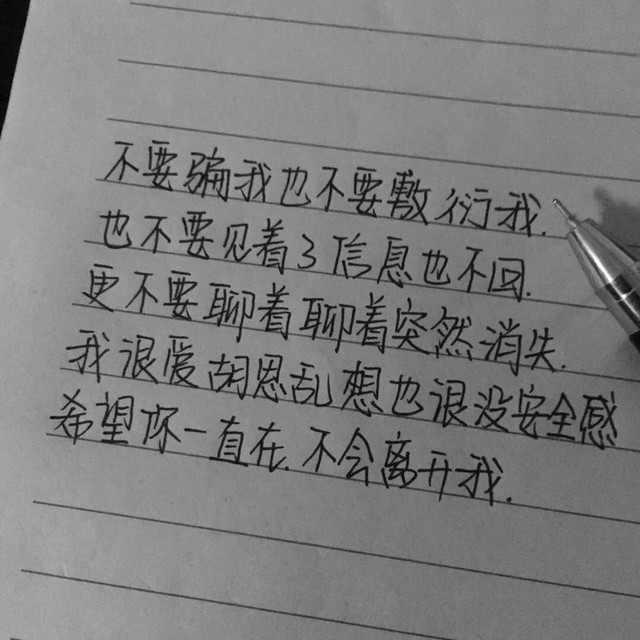 不要骗我也不要敷衍我.
也不要见着了信息也不回.
更不要聊着聊着突然消失.
我很爱胡思乱想也很没安全感
希望你一直在.不会离开我.